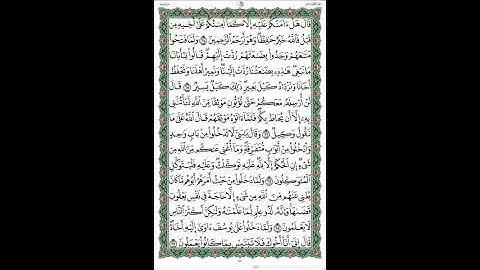 قَالَ هَلْ ءَامَنُكُمْ عَلَيْهِ إِلَّا كَمَآ أَمِنتُكُمْ عَلَىٰٓ أَخِيهِ مِن
قَبْلُ فَٱللَّهُ خَيْرٌ حَٰفِظًا وَهُوَ أَرْحَمُ ٱلرَّٰحِمِينَ ٦٤ وَلَمَّا فَتَحُوا۟
مَتَٰعَهُمْ وَجَدُوا۟ بِضَٰعَتَهُمْ رُدَّتْ إِلَيْهِمْ قَالُوا۟ يَٰٓأَبَانَا
مَا نَبْغِى هَٰذِهِۦ بِضَٰعَتُنَا رُدَّتْ إِلَيْنَا وَنَمِيرُ أَهْلَنَا وَنَحْفَظُ
أَخَانَا وَنَزْدَادُ كَيْلَ بَعِيرٍ ذَٰلِكَ كَيْلٌ يَسِيرٌ ٦٥ قَالَ
لَنْ أُرْسِلَهُۥ مَعَكُمْ حَتَّىٰ تُؤْتُونِ مَوْثِقًا مِّنَ ٱللَّهِ لَتَأْتُنَّنِى
بِهِۦٓ إِلَّآ أَن يُحَاطَ بِكُمْ فَلَمَّآ ءَاتَوْهُ مَوْثِقَهُمْ قَالَ ٱللَّهُ عَلَىٰ مَا
نَقُولُ وَكِيلٌ ٦٦ وَقَالَ يَٰبَنِىَّ لَا تَدْخُلُوا۟ مِنۢ بَابٍ وَٰحِدٍ
وَٱدْخُلُوا۟ مِنْ أَبْوَٰبٍ مُّتَفَرِّقَةٍ وَمَآ أُغْنِى عَنكُم مِّنَ ٱللَّهِ مِن
شَىْءٍ إِنِ ٱلْحُكْمُ إِلَّا لِلَّهِ عَلَيْهِ تَوَكَّلْتُ وَعَلَيْهِ فَلْيَتَوَكَّلِ
ٱلْمُتَوَكِّلُونَ ٦٧ وَلَمَّا دَخَلُوا۟ مِنْ حَيْثُ أَمَرَهُمْ أَبُوهُم مَّا كَانَ
يُغْنِى عَنْهُم مِّنَ ٱللَّهِ مِن شَىْءٍ إِلَّا حَاجَةً فِى نَفْسِ يَعْقُوبَ
قَضَىٰهَا وَإِنَّهُۥ لَذُو عِلْمٍ لِّمَا عَلَّمْنَٰهُ وَلَٰكِنَّ أَكْثَرَ ٱلنَّاسِ
لَا يَعْلَمُونَ ٦٨ وَلَمَّا دَخَلُوا۟ عَلَىٰ يُوسُفَ ءَاوَىٰٓ إِلَيْهِ أَخَاهُ
قَالَ إِنِّىٓ أَنَا۠ أَخُوكَ فَلَا تَبْتَئِسْ بِمَا كَانُوا۟ يَعْمَلُونَ ٦٩